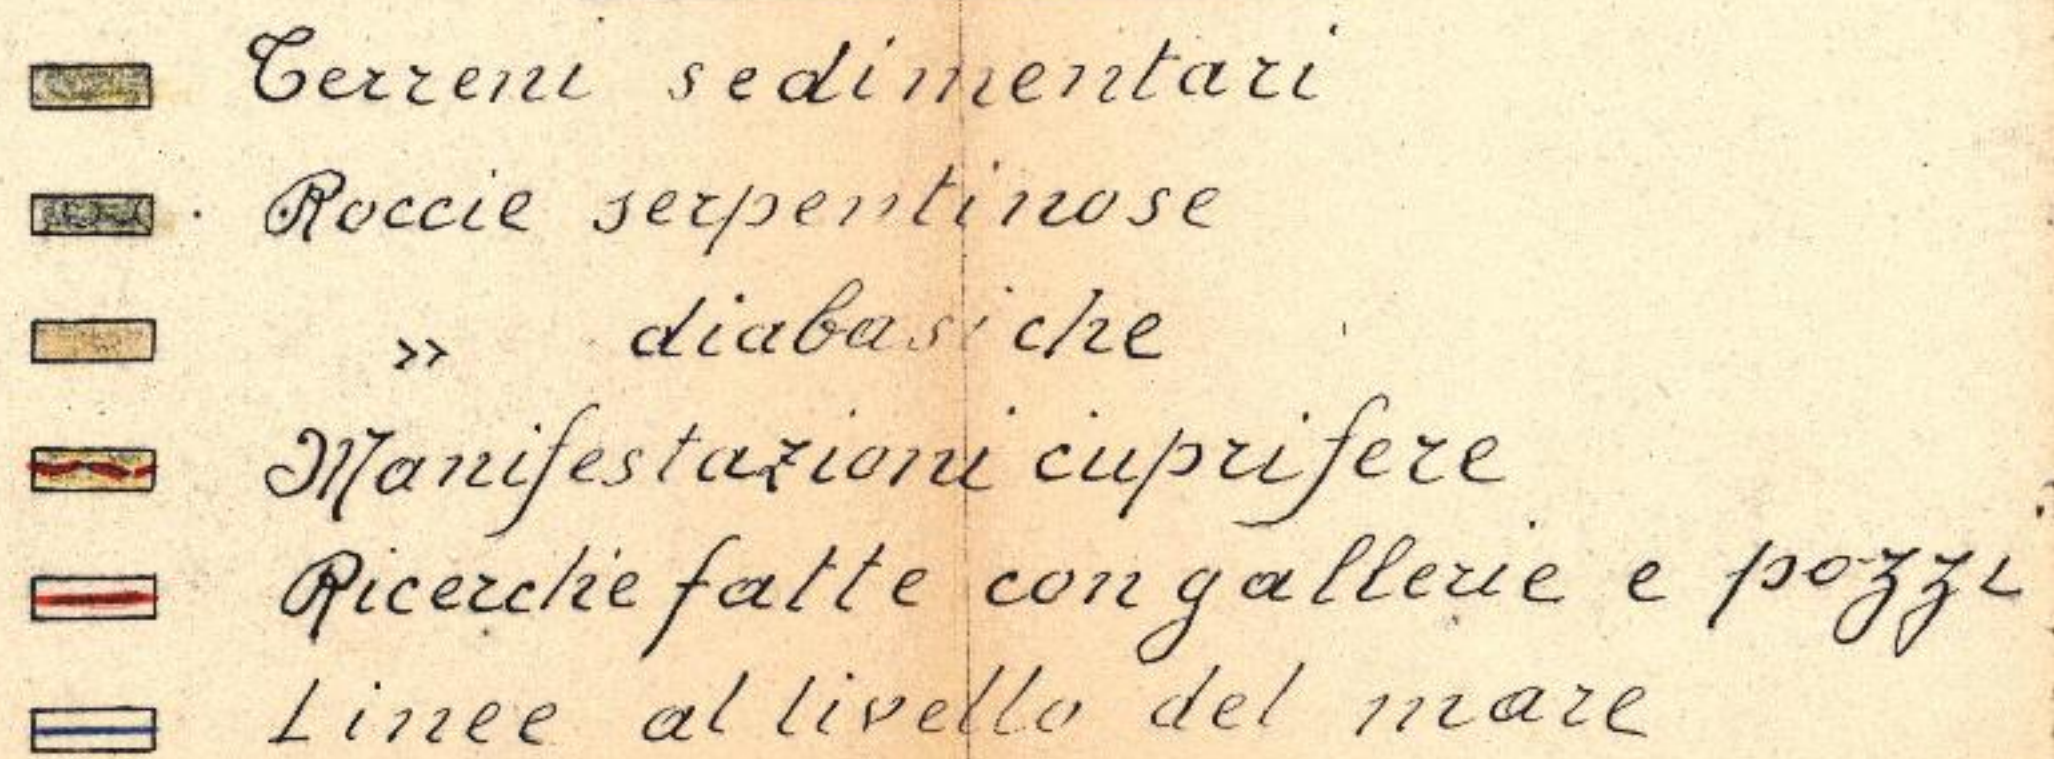 Terreni sedimentari
Roccie serpentinose
» diabasiche
Manifestazioni cuprifere
Ricerche fatte con gallerie e pozzi
Linee al livello del mare